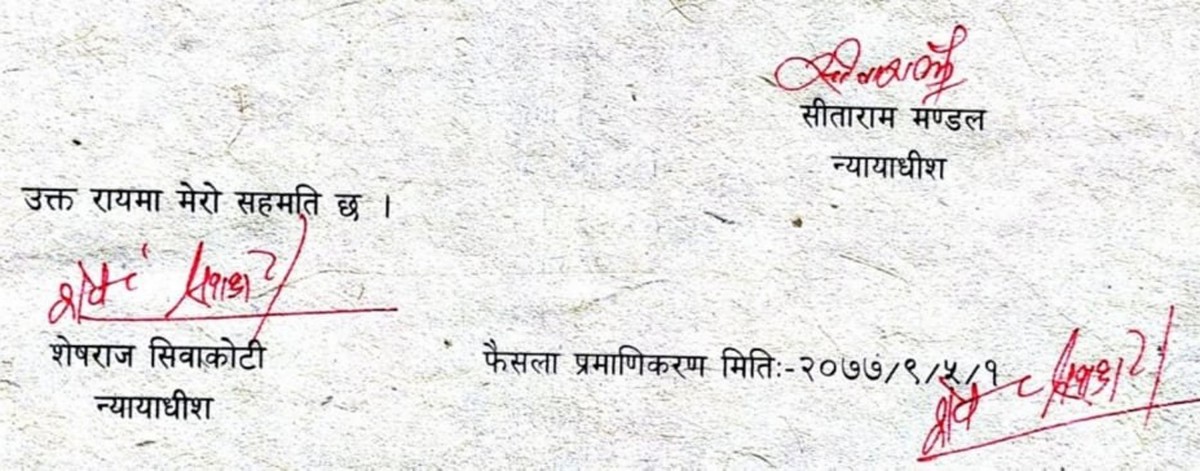 सीताराम मण्डल
न्यायाधीश
उक्त रायमा मेरो सहमति छ ।
शेषराज सिवाकोटी
न्यायाधीश
फैसला प्रमाणिकरण मितिः-२०७७/९/५/१